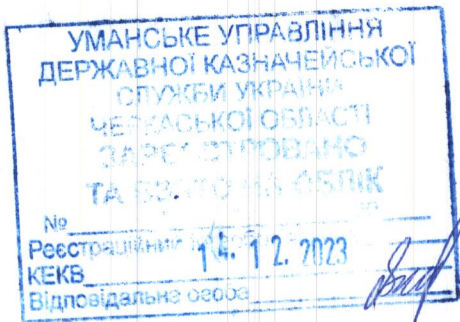 УМАНСЬКЕ УПРАВЛІННЯ
ДЕРЖАВНОЇ КАЗНАЧЕЙСЬКОЇ
СЛУЖБИ УКРАЇНИ
ЧЕРКАСЬКОЇ ОБЛАСТІ
ЗАРЕЄСТРОВАНО
ТА ВЗЯТО НА ОБЛІК
№
Реєстраційний
14. 12. 2023
КЕКВ
Відповідальна особа